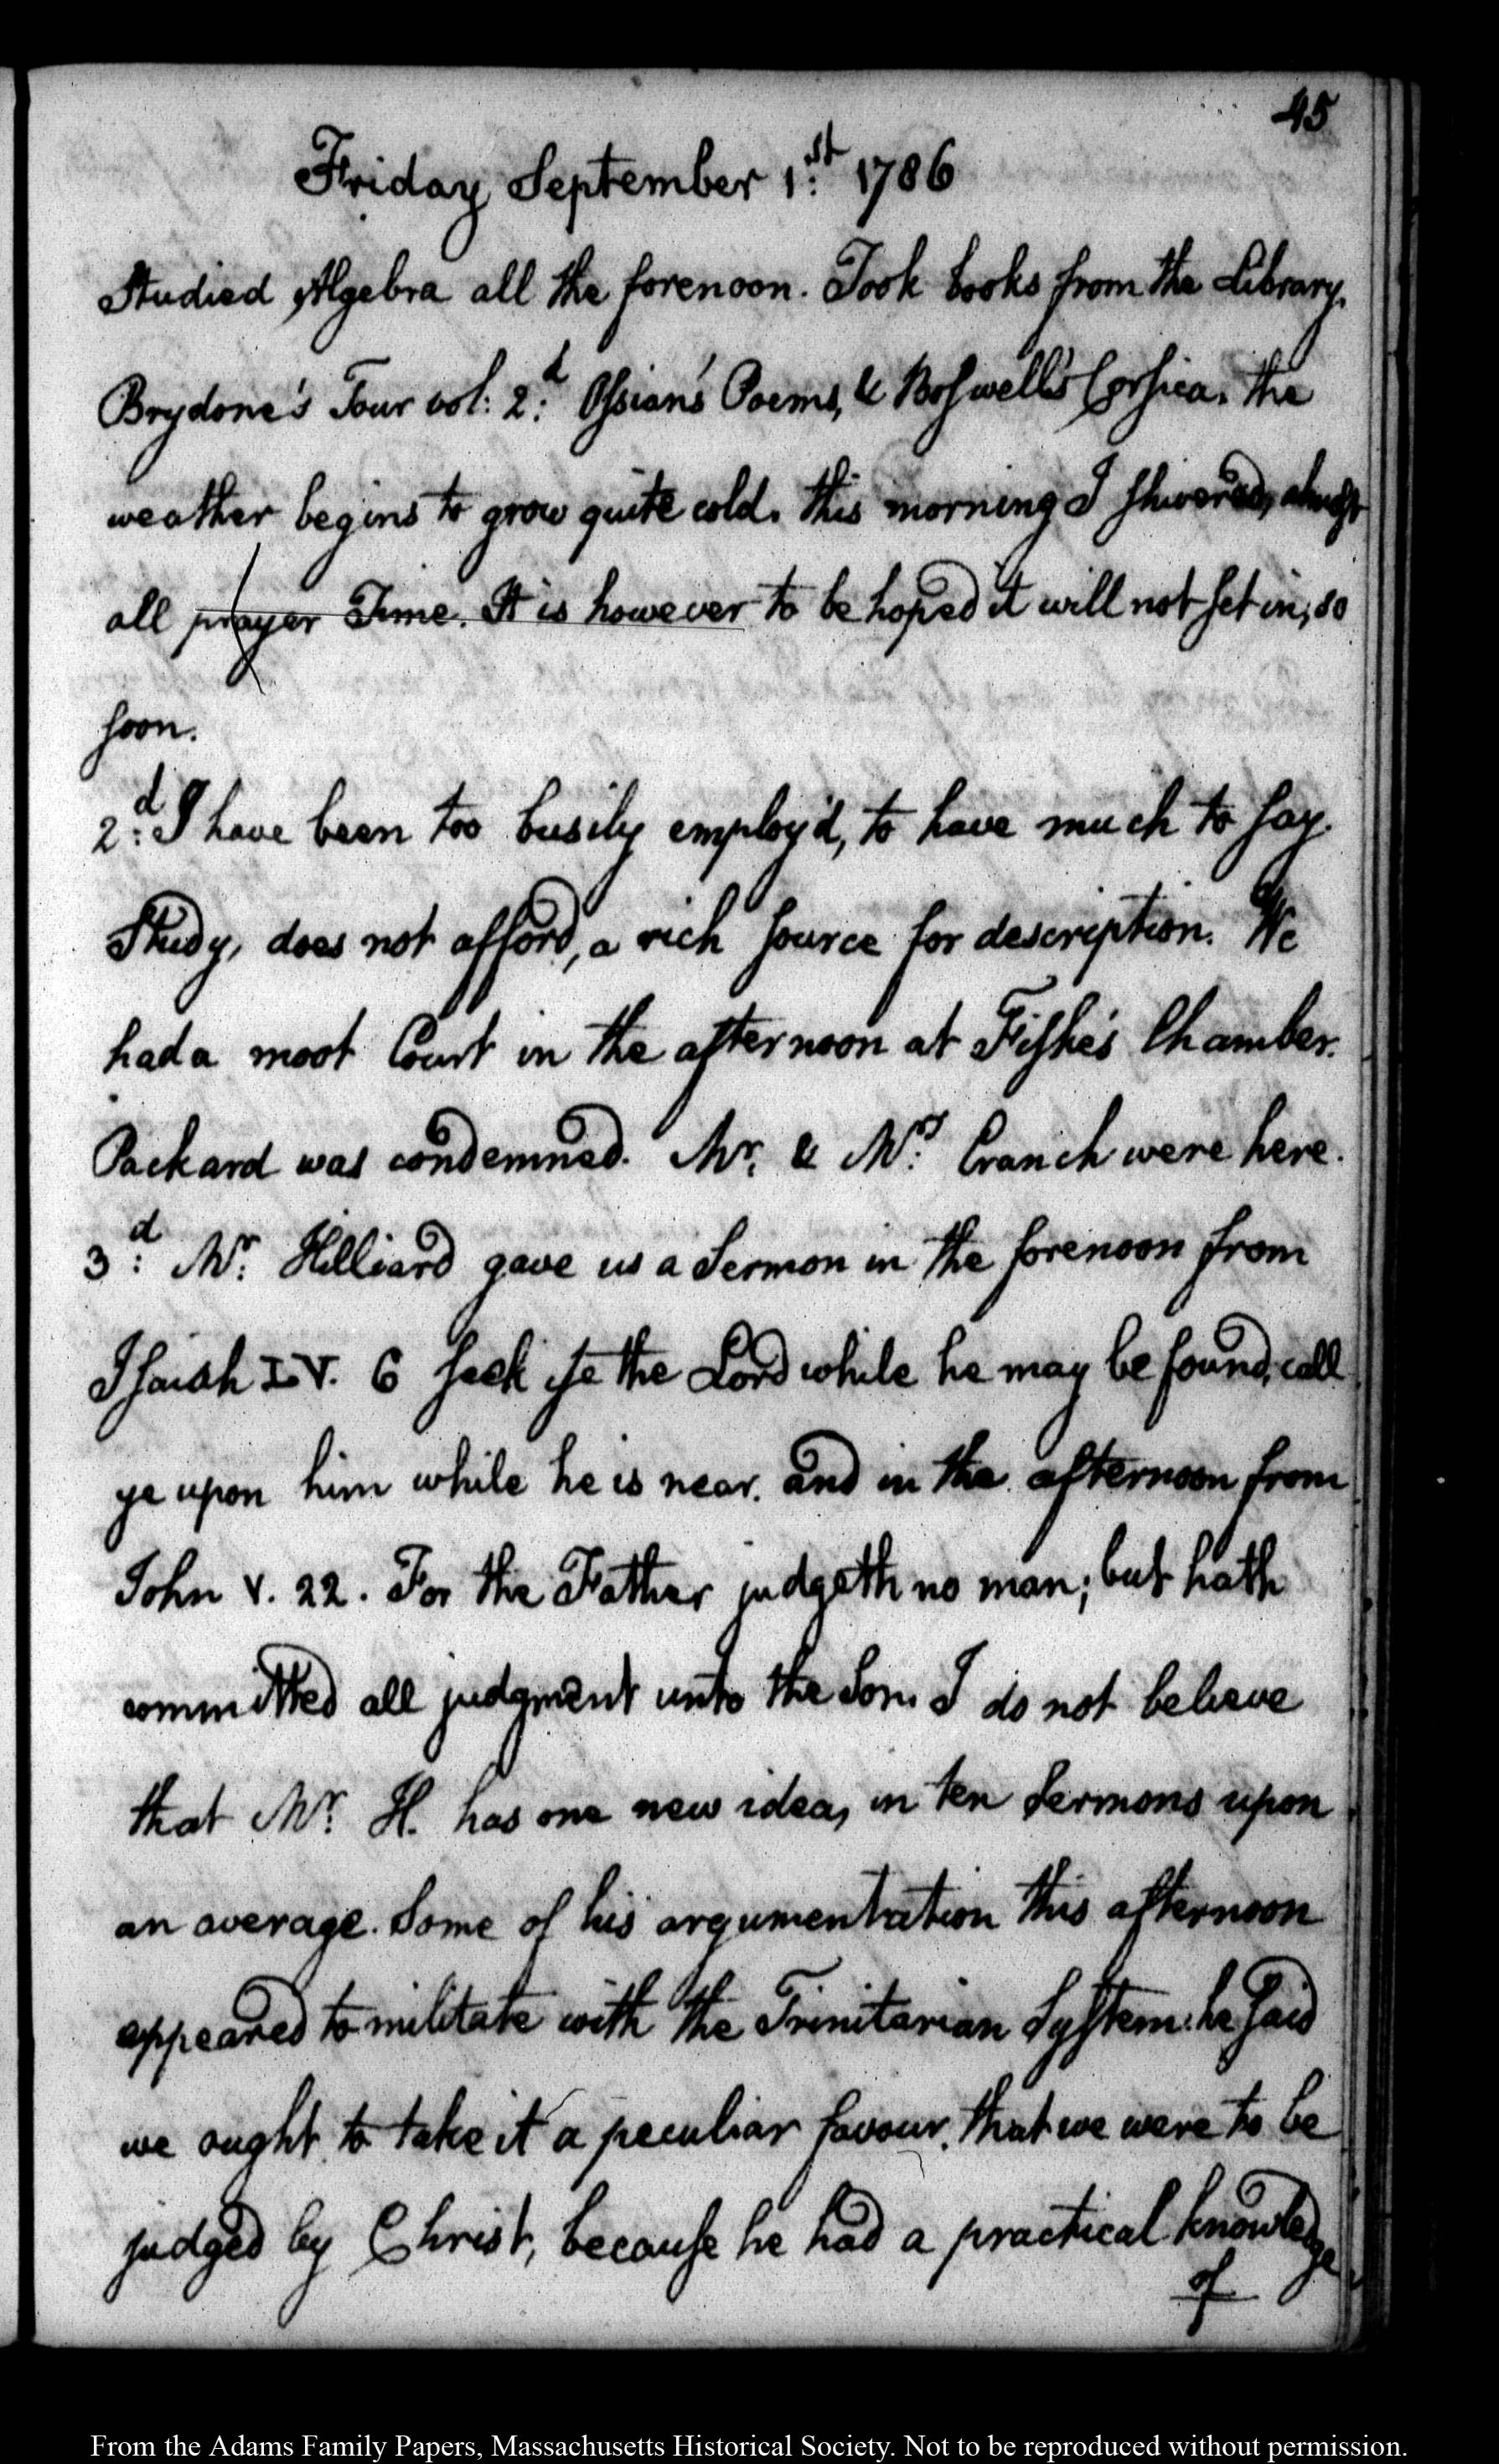 45
Friday September 1st: 1786
Studied Algebra all the forenoon. Took books from the Library.
Brydone's Tour vol: 2.d Ossian's Poems, & Boswell's Corsica. The
weather begins to grow quite cold. this morning I shivered, almost
all prayer Time. It is however to be hoped it will not set in, so
soon.
2:d I have been too busily employ'd, to have much to say.
Study, does not afford, a rich source for description. We
had a moot Court in the afternoon at Fiske's Chamber.
Packard was condemned. Mr. & Mrs: Cranch were here.
3:d Mr: Hilliard gave us a Sermon in the forenoon from
Isaiah LV. 6 seek ye the Lord while he may be found, call
ye upon him while he is near. and in the afternoon from
John V. 22. For the Father judgeth no man; but hath
committed all judgment unto the Son. I do not believe
that Mr: H. has one new idea, in ten Sermons upon
an average. Some of his argumentation this afternoon
appeared to militate with the Trinitarian System: he said
we ought to take it a peculiar favour, that we were to be
judged by Christ, because he had a practical knowledge
of
From the Adams Family Papers, Massachusetts Historical Society. Not to be reproduced without permission.